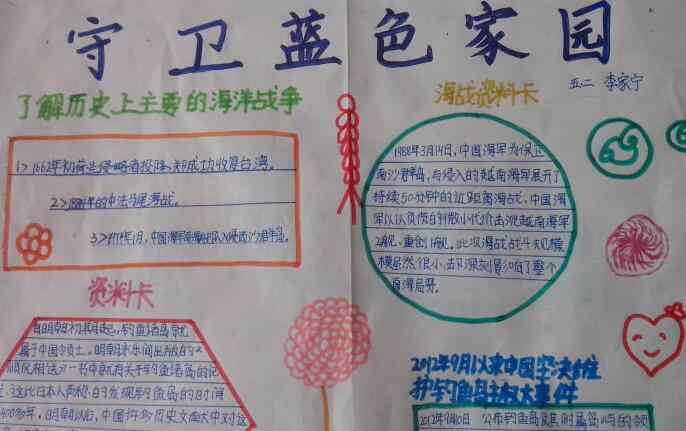 守卫蓝色家园
五.二 李家宁
了解历史上主要的海洋战争
1>1662年初荷兰侵略者投降,郑成功收复台湾。
2>1884年的中法马尾海战。
海战资料卡
1988年3月14日,中国海军为保
南沙群岛,与侵入的越南海军展开了
持续50分钟的近距离海战,中国海
军以1人负伤的微小代价击沉越南海军
2艘、重创1艘。此次海战战斗规模
模虽然很小,却深刻影响了整个
南海局势。
资料卡
自明朝初期起,钓鱼诸岛就
属于中国领土。明朝永乐间出版的
顺风相送》一书中就有关于钓鱼诸岛的记
这比日本人声称的发现钓鱼岛的时间
400多年,明朝以后,中国许多历史文献中对这
2012年9月以来中国坚决维
护钓鱼岛主权大事件
2012年9月10日 公布钓鱼岛及其附属岛屿的领